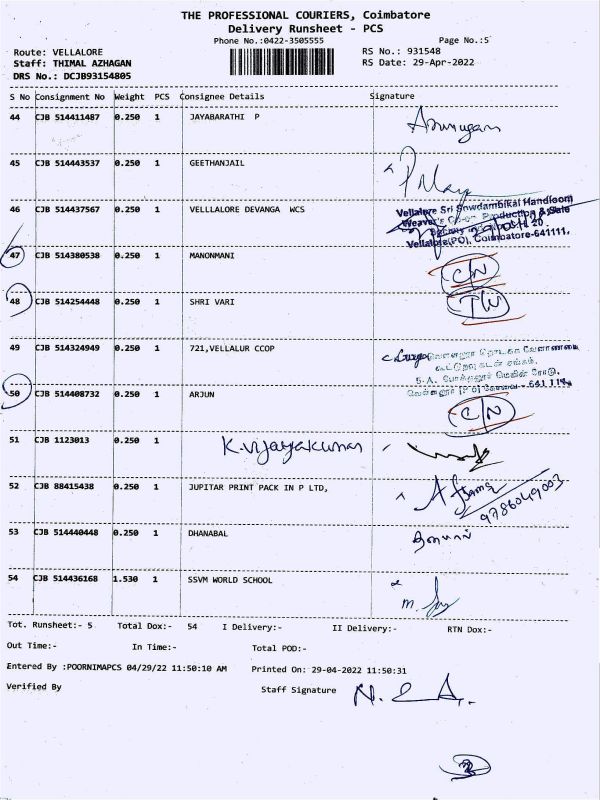 THE PROFESSIONAL COURIERS, Coimbatore
Delivery Runsheet - PCS
Phone No.:0422-3505555 Page No.:5
Route: VELLALORE RS No.: 931548
Staff: THIMAL AZHAGAN RS Date: 29-Apr-2022
DRS No.: DCJB93154805
S No Consignment No Weight PCS Consignee Details Signature
44 CJB 514411487 0.250 1 JAYABARATHI P
45 CJB 514443537 0.250 1 GEETHANJAIL
46 CJB 514437567 0.250 1 VELLLALORE DEVANGA WCS
Vellalore Sri Sowdambikai Handloom
Weaver's Co-op Production & Sale
Vellalore(PO), Coimbatore-641111.
47 CJB 514380538 0.250 1 MANONMANI C/N
48 CJB 514254448 0.250 1 SHRI VARI
49 CJB 514324949 0.250 1 721,VELLALUR CCOP
50 CJB 514408732 0.250 1 ARJUN C/N
51 CJB 1123013 0.250 1 K.Vijayakumar
52 CJB 88415438 0.250 1 JUPITAR PRINT PACK IN P LTD,
9786049003
53 CJB 514440448 0.250 1 DHANABAL தனபால்
54 CJB 514436168 1.530 1 SSVM WORLD SCHOOL
Tot. Runsheet:- 5 Total Dox:- 54 I Delivery:- II Delivery:- RTN Dox:-
Out Time:- In Time:- Total POD:-
Entered By :POORNIMAPCS 04/29/22 11:50:10 AM Printed On: 29-04-2022 11:50:31
Verified By Staff Signature